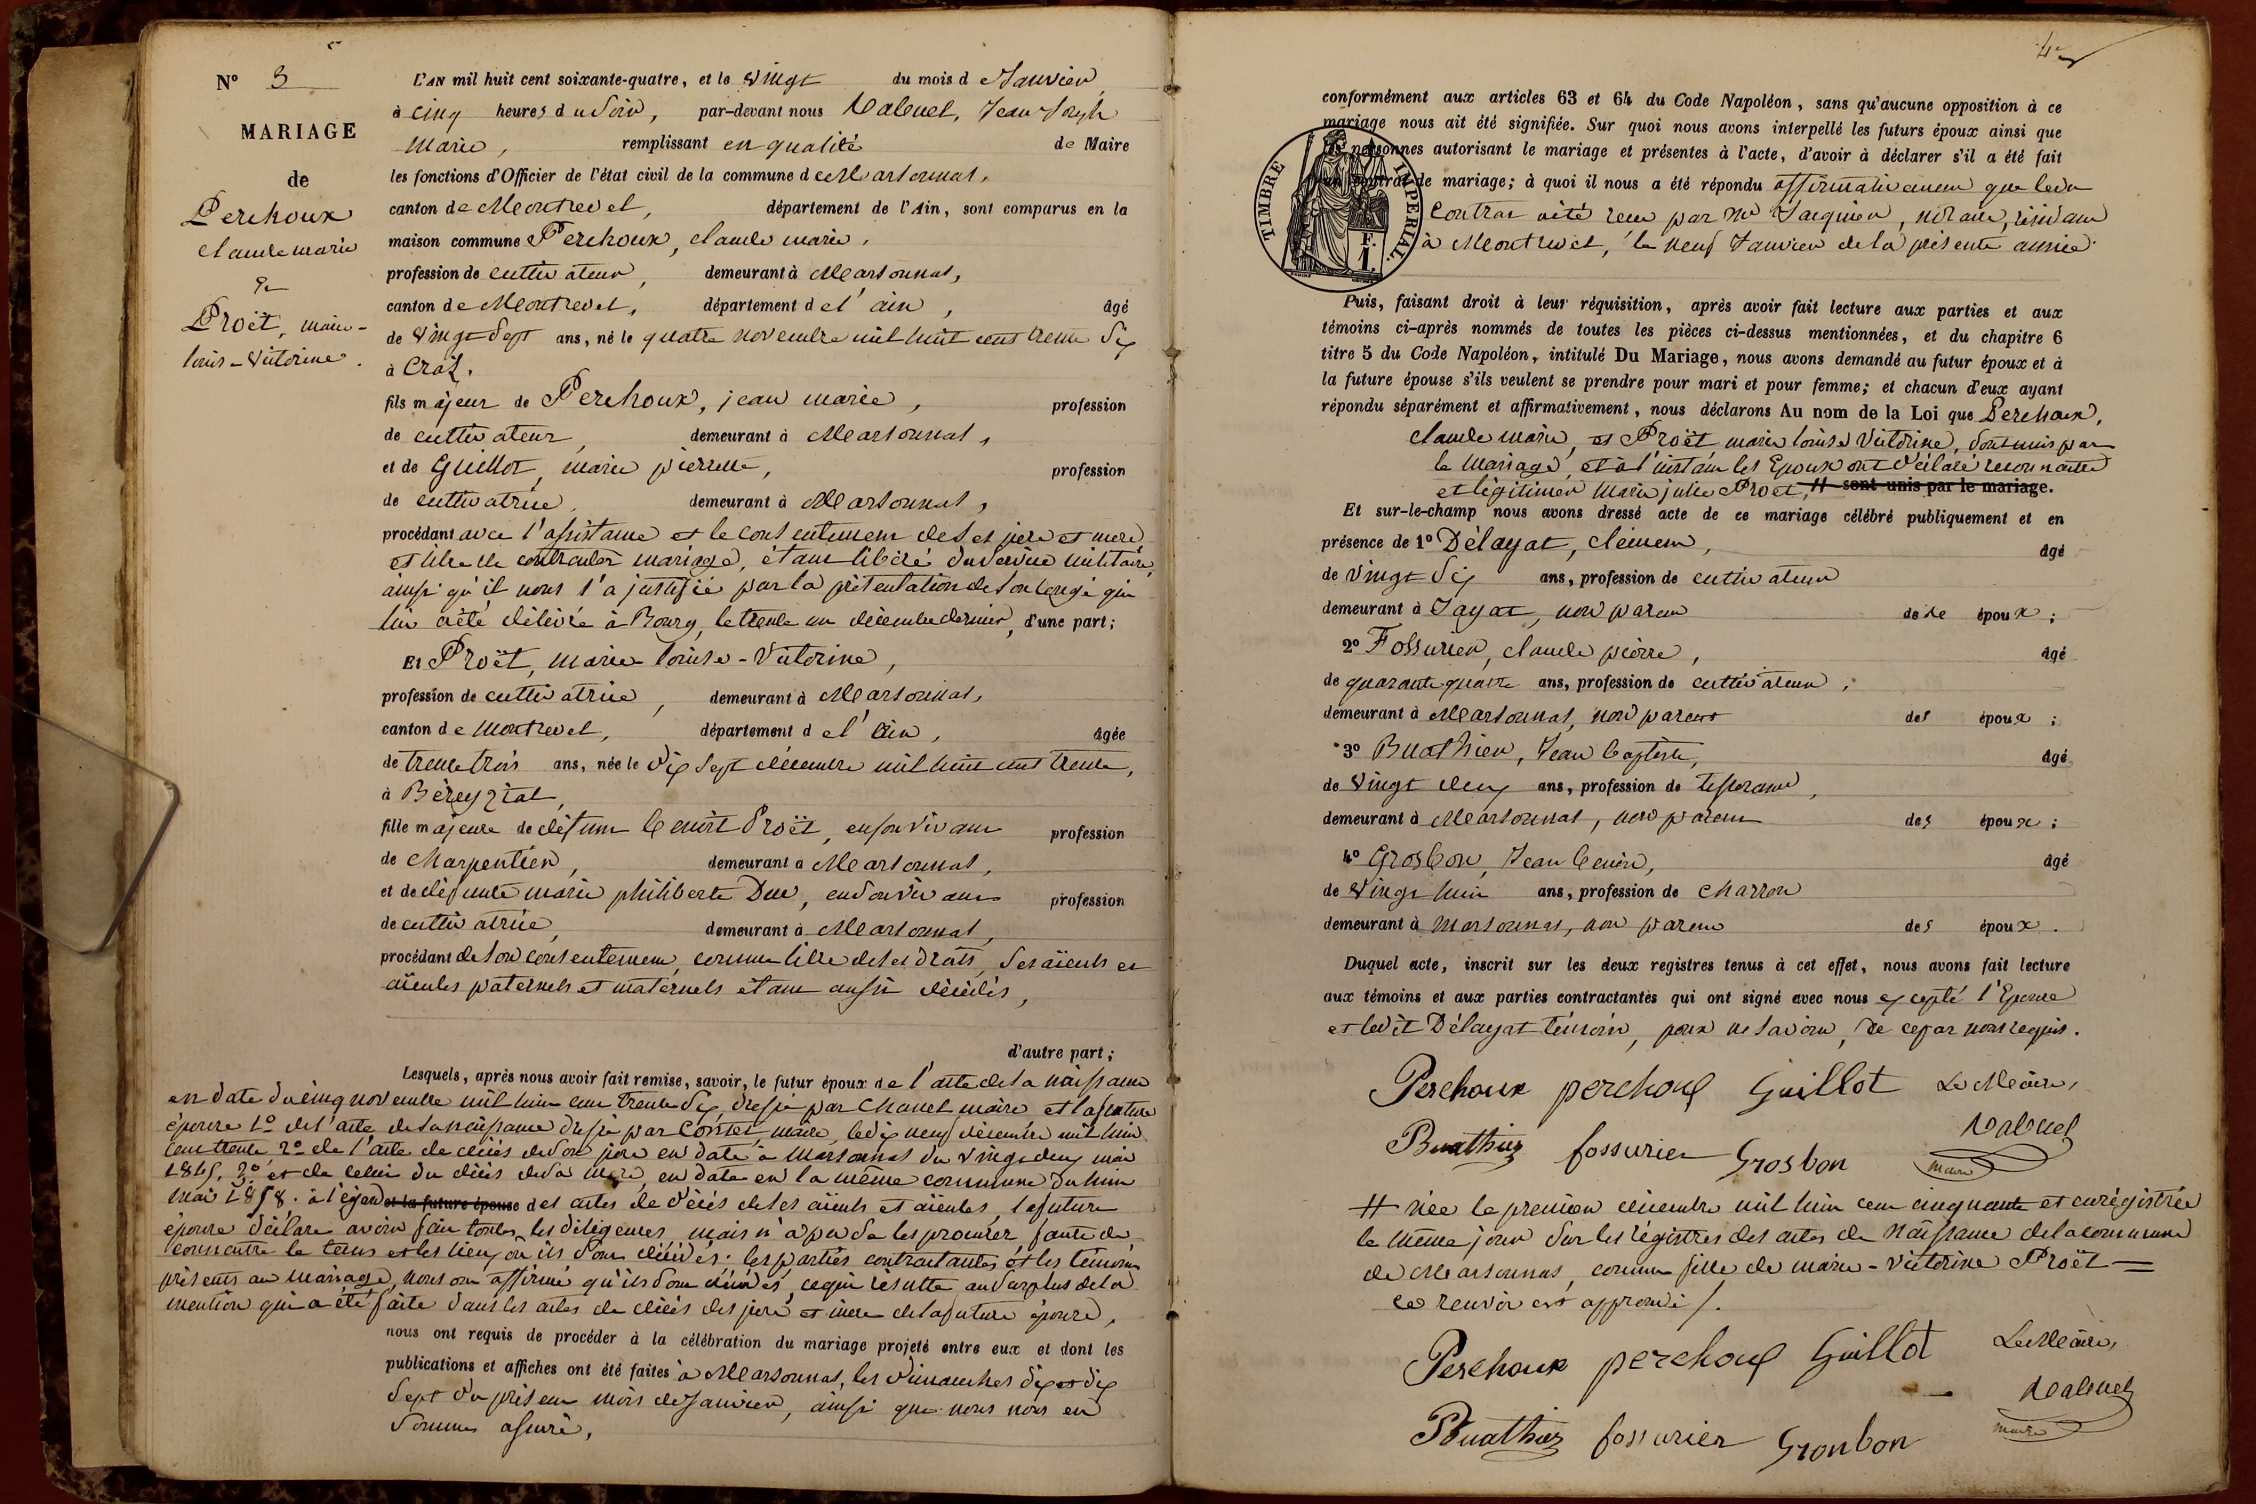 N° 3
MARIAGE
de
Perchoux
claude marie
&
Proët, marie-
louise-Victorine.
L'AN mil huit cent soixante-quatre, et le vingt du mois d Janvier
à cinq heures du Soir, par-devant nous Jean Joseph
Marie, remplissant en qualité de Maire
les fonctions d'Officier de l'état civil de la commune de Marsonnas,
canton de Montrevel, département de l'Ain, sont comparus en la
maison commune Perchoux, claude marie,
profession de cultivateur, demeurant à Marsonnas,
canton de Montrevel, département de l'ain, âgé
de vingt Sept ans, né le quatre novembre mil huit cent trente Six
à Craz.
fils majeur de Perchoux, jean marie, profession
de cultivateur, demeurant à Marsonnas,
et de Guillot, marie pierrette, profession
de cultivatrice, demeurant à Marsonnas,
procédant avec l'assistance et le consentement de Ses père et mère
et libre de contracter mariage, étant libéré du Service militaire,
ainsi qu'il nous l'a justifié par la présentation de Son congé qui
lui a été délivré à Bourg, le trente un décembre dernier, d'une part;
Et Proët, marie-louise-Victorine,
profession de cultivatrice, demeurant à Marsonnas,
canton de Montrevel, département de l'Ain, âgée
de trente trois ans, née le dix Sept décembre mil huit cent trente,
à Béreyziat,
fille majeure de défunt benoit Proët, en son vivant profession
de charpentier, demeurant à Marsonnas,
et de défunte marie philiberte Duc, en Son vivant profession
de cultivatrice, demeurant à Marsonnas,
procédant de Son consentement, comme libre de Ses droits, Ses aïeuls et
aïeules paternels et maternels étant aussi décédés,
d'autre part;
Lesquels, après nous avoir fait remise, savoir, le futur époux de l'acte de Sa naissance
en date du cinq novembre mil huit cent trente Six, dressé par Chanel maire et la future
épouse 1° de l'acte de Sa naissance dressé par maire, le dix neuf décembre mil huit
cent trente, 2° de l'acte de décès de Son père en date à Marsonnas du vingt deux mai
1845, 3° et de celui du décès de Sa mère, en date en la même commune du huit
mai 1858. à l'égard et la future épouse des actes de décès de Ses aïeuls et aïeules, la future
épouse déclare avoir fait toutes les diligences, mais n'a pu Se les procurer, faute de
connaitre le tems et les lieux où ils Sont décédés. les parties contractantes et les témoins
présents au mariage, nous ont affirmé qu'ils Sont décédés, ce qui résulte au Surplus de la
mention qui a été faite dans les actes de décès des père et mère de la future épouse,
nous ont requis de procéder à la célébration du mariage projeté entre eux et dont les
publications et affiches ont été faites à Marsonnas, les dimanches dix et dix
Sept du présent mois de Janvier, ainsi que nous nous en
Sommes assuré,
conformément aux articles 63 et 64 du Code Napoléon, sans qu'aucune opposition à ce
mariage nous ait été signifiée. Sur quoi nous avons interpellé les futurs époux ainsi que
les personnes autorisant le mariage et présentes à l'acte, d'avoir à déclarer s'il a été fait
un contrat de mariage; à quoi il nous a été répondu affirmativement que ledit
Contrat a été reçu par Me Jacquier, notaire, résidant
à Montrevel, le neuf Janvier de la présente année.
TIMBRE IMPERIAL
F.
1.
Puis, faisant droit à leur réquisition, après avoir fait lecture aux parties et aux
témoins ci-après nommés de toutes les pièces ci-dessus mentionnées, et du chapitre 6
titre 5 du Code Napoléon, intitulé Du Mariage, nous avons demandé au futur époux et à
la future épouse s'ils veulent se prendre pour mari et pour femme; et chacun d'eux ayant
répondu séparément et affirmativement, nous déclarons Au nom de la Loi que Perchoux,
claude marie, et Proët marie louise Victorine, Sont unis par
le Mariage, et à l'instant les Epoux ont déclaré reconnaitre
et légitimer Marie julie Proët, # sont unis par le mariage.
Et sur-le-champ nous avons dressé acte de ce mariage célébré publiquement et en
présence de 1° Délayat, clément, âgé
de vingt Six ans, profession de cultivateur
demeurant à Jayat, non parent des époux;
2° Fossurier, claude pierre, âgé
de quarante quatre ans, profession de cultivateur,
demeurant à Marsonnas, non parent des époux;
3° Buathier, Jean baptiste, âgé
de vingt deux ans, profession de tisserand,
demeurant à Marsonnas, non parent des époux;
4° Grosbon, Jean benoit, âgé
de vingt huit ans, profession de charron
demeurant à Marsonnas, non parent des époux.
Duquel acte, inscrit sur les deux registres tenus à cet effet, nous avons fait lecture
aux témoins et aux parties contractantes qui ont signé avec nous excepté l'Epouse
et ledit Délayat témoin, pour ne Savoir, de ce par nous requis.
Perchoux perchoux Guillot Le Maire,
Buathier fossurier Grosbon
maire
# née le premier décembre mil huit cent cinquante et enrégistrée
le même jour Sur les régistres des actes de Naissance de la commune
de Marsonnas, comme fille de marie-victorine Proët =
ce renvoi est approuvé /.
Perchoux perchoux Guillot Le Maire,
Buathier fossurier Gronbon
maire